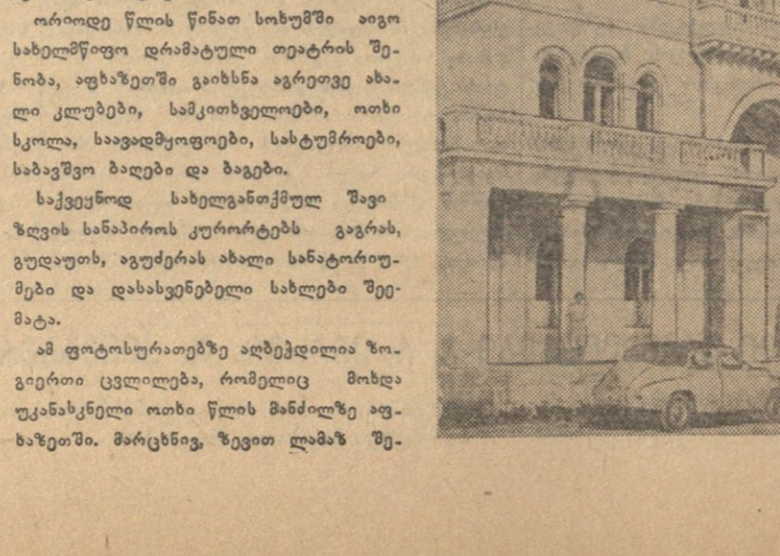 ორიოდე წლის წინათ სოხუმში აიგო
სახელმწიფო დრამატული თეატრის შე-
ნობა, აფხაზეთში გაიხსნა აგრეთვე ახა-
ლი კლუბები, სამკითხველოები, ოთხი
სკოლა, საავადმყოფოები, სასტუმროები,
საბავშვო ბაღები და ბაგები.
საქვეყნოდ სახელგანთქმულ შავი
ზღვის სანაპიროს კურორტებს გაგრას,
გუდაუთს, აგუძერას ახალი სანატორიუ-
მები და დასასვენებელი სახლები შეე-
მატა.
ამ ფოტოსურათებზე აღბეჭდილია ზო-
გიერთი ცვლილება, რომელიც მოხდა
უკანასკნელი ოთხი წლის მანძილზე აფ-
ხაზეთში. მარცხნივ, ზევით ლამაზ შე-